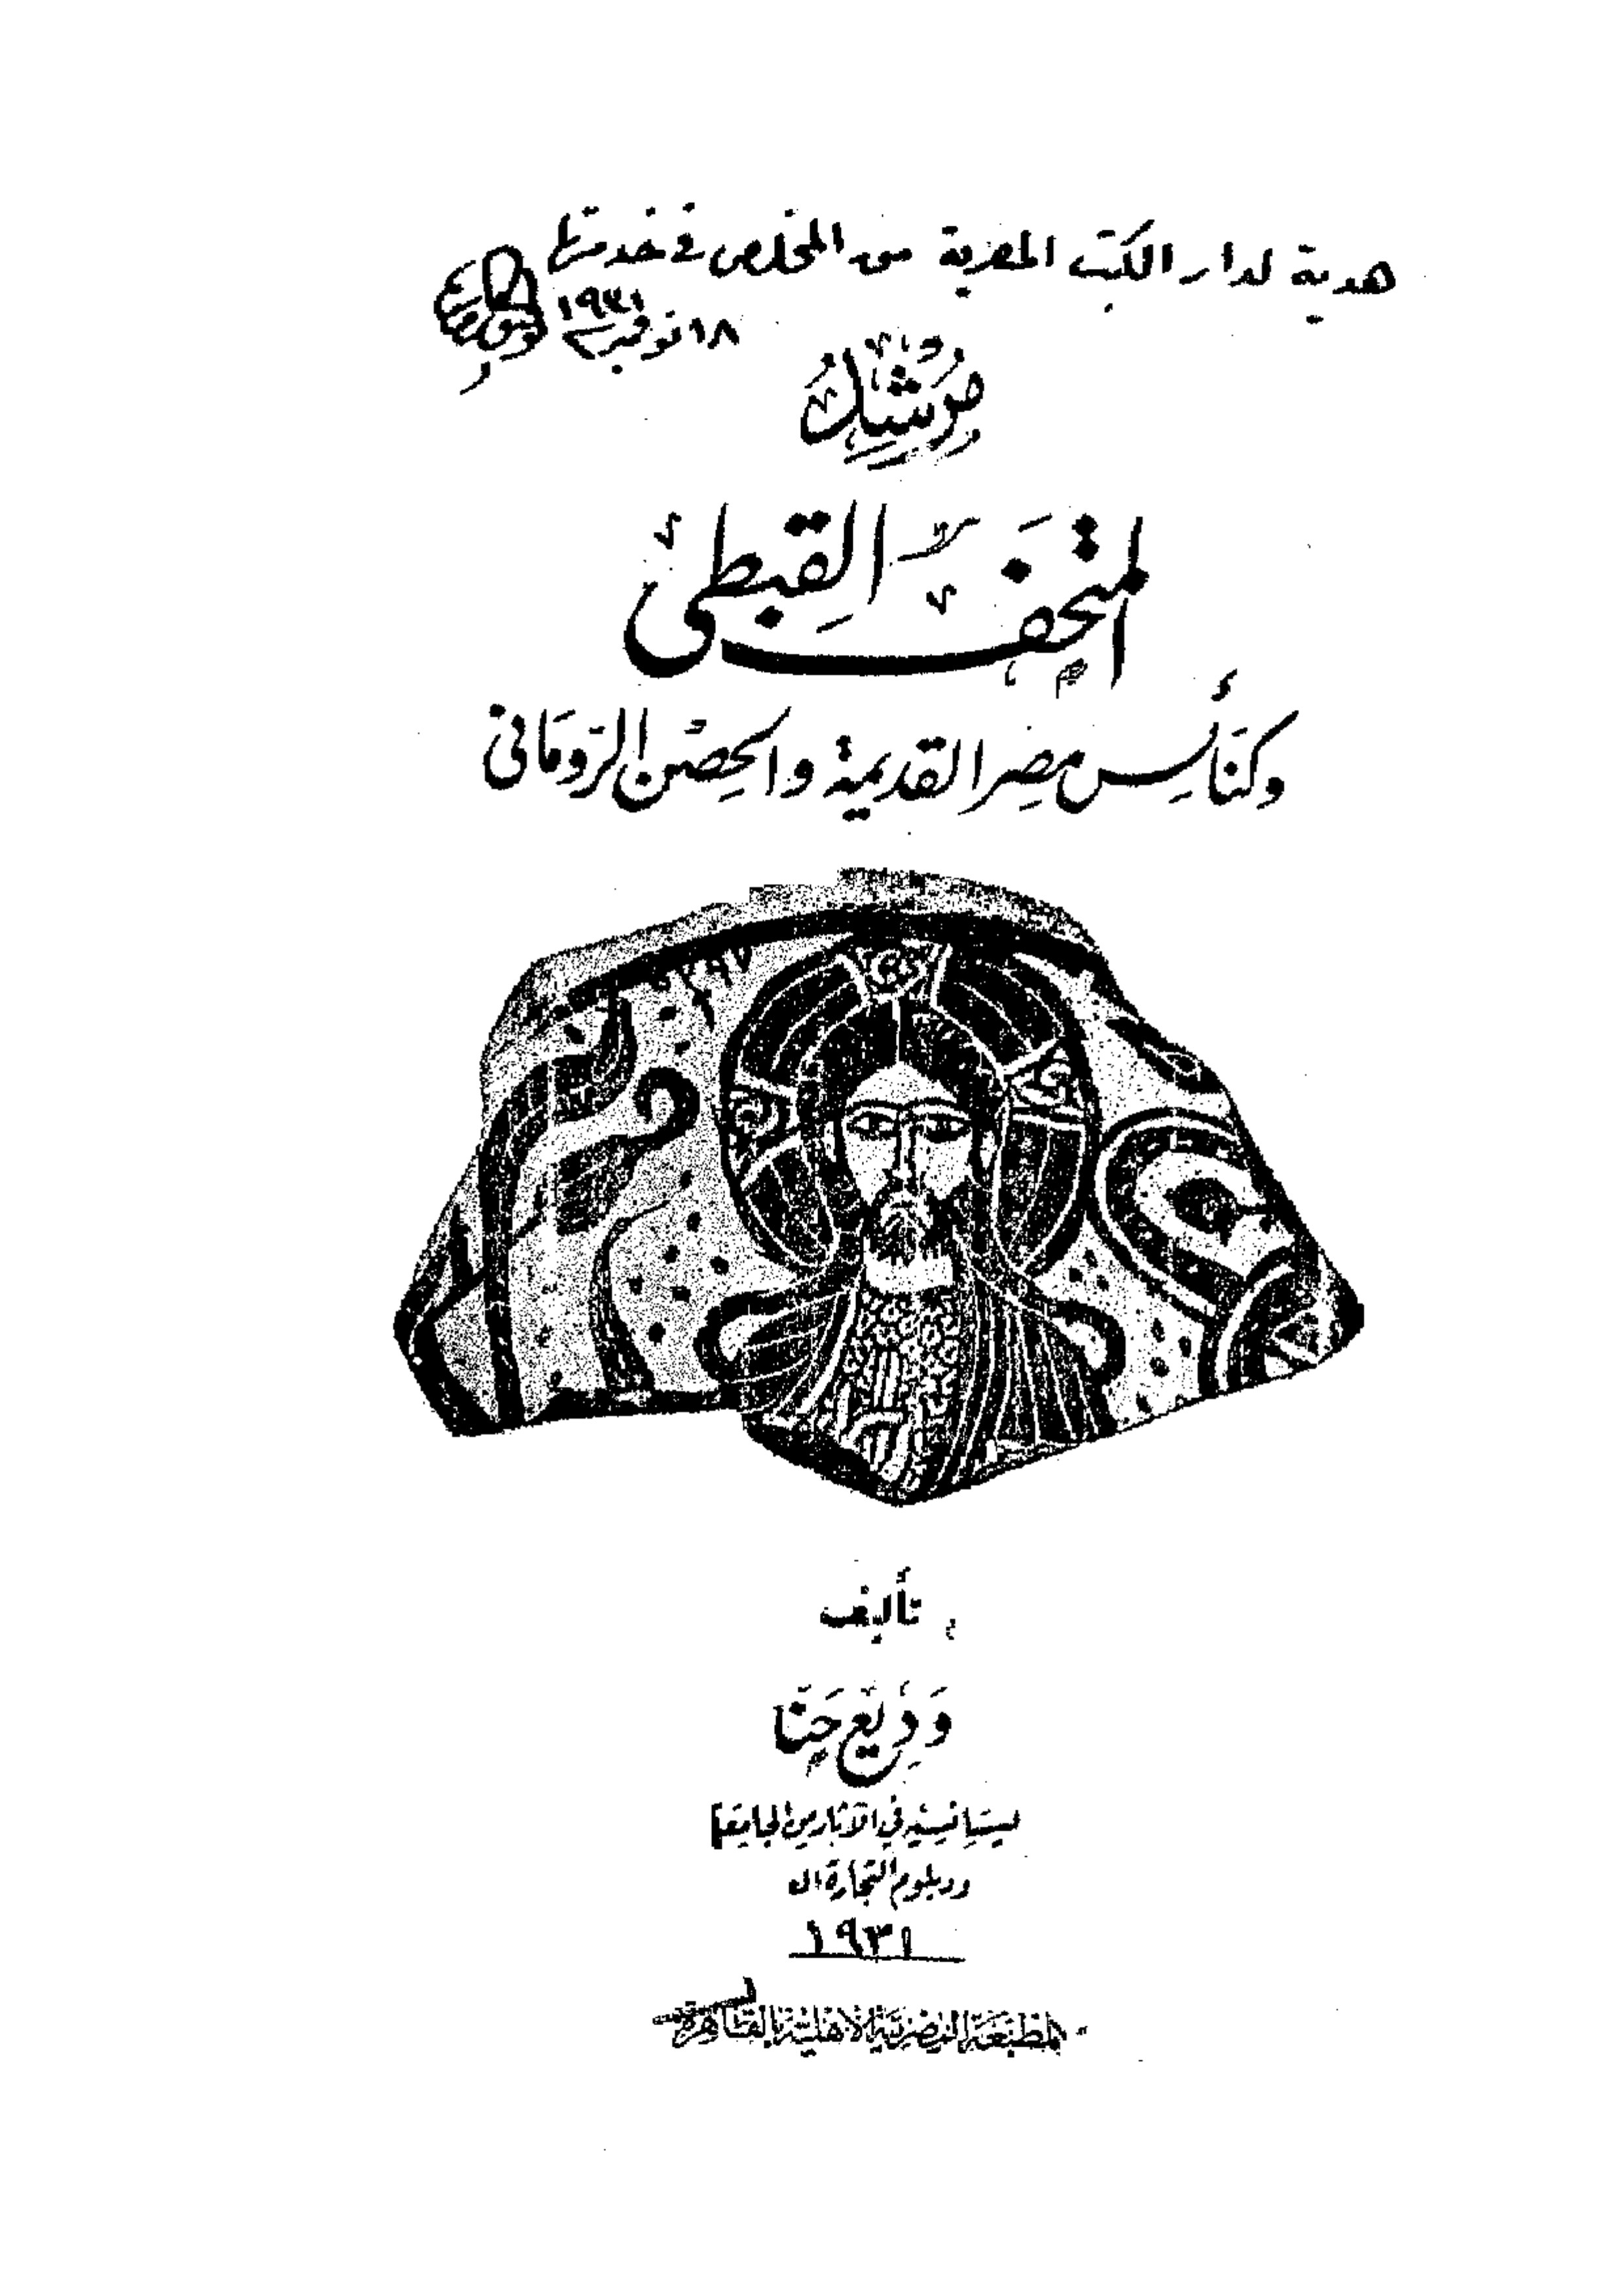 هدية لدار الكتب المصرية من المخلص فى خدمتها
١٨ نوفمبر ١٩٣١
مُرْشِدُ
المَتْحَفِ القِبْطِى
وكَنَائِس مِصْر القديمة والحِصْن الرّومَانى
٤٧٩٧
تأليف
وَدِيْع حَنَّا
ليسانسيه فى الآثار من الجامعة
ودبلوم التجارة ال
١٩٣١
المطبعة المصرية الأهلية بالقاهرة